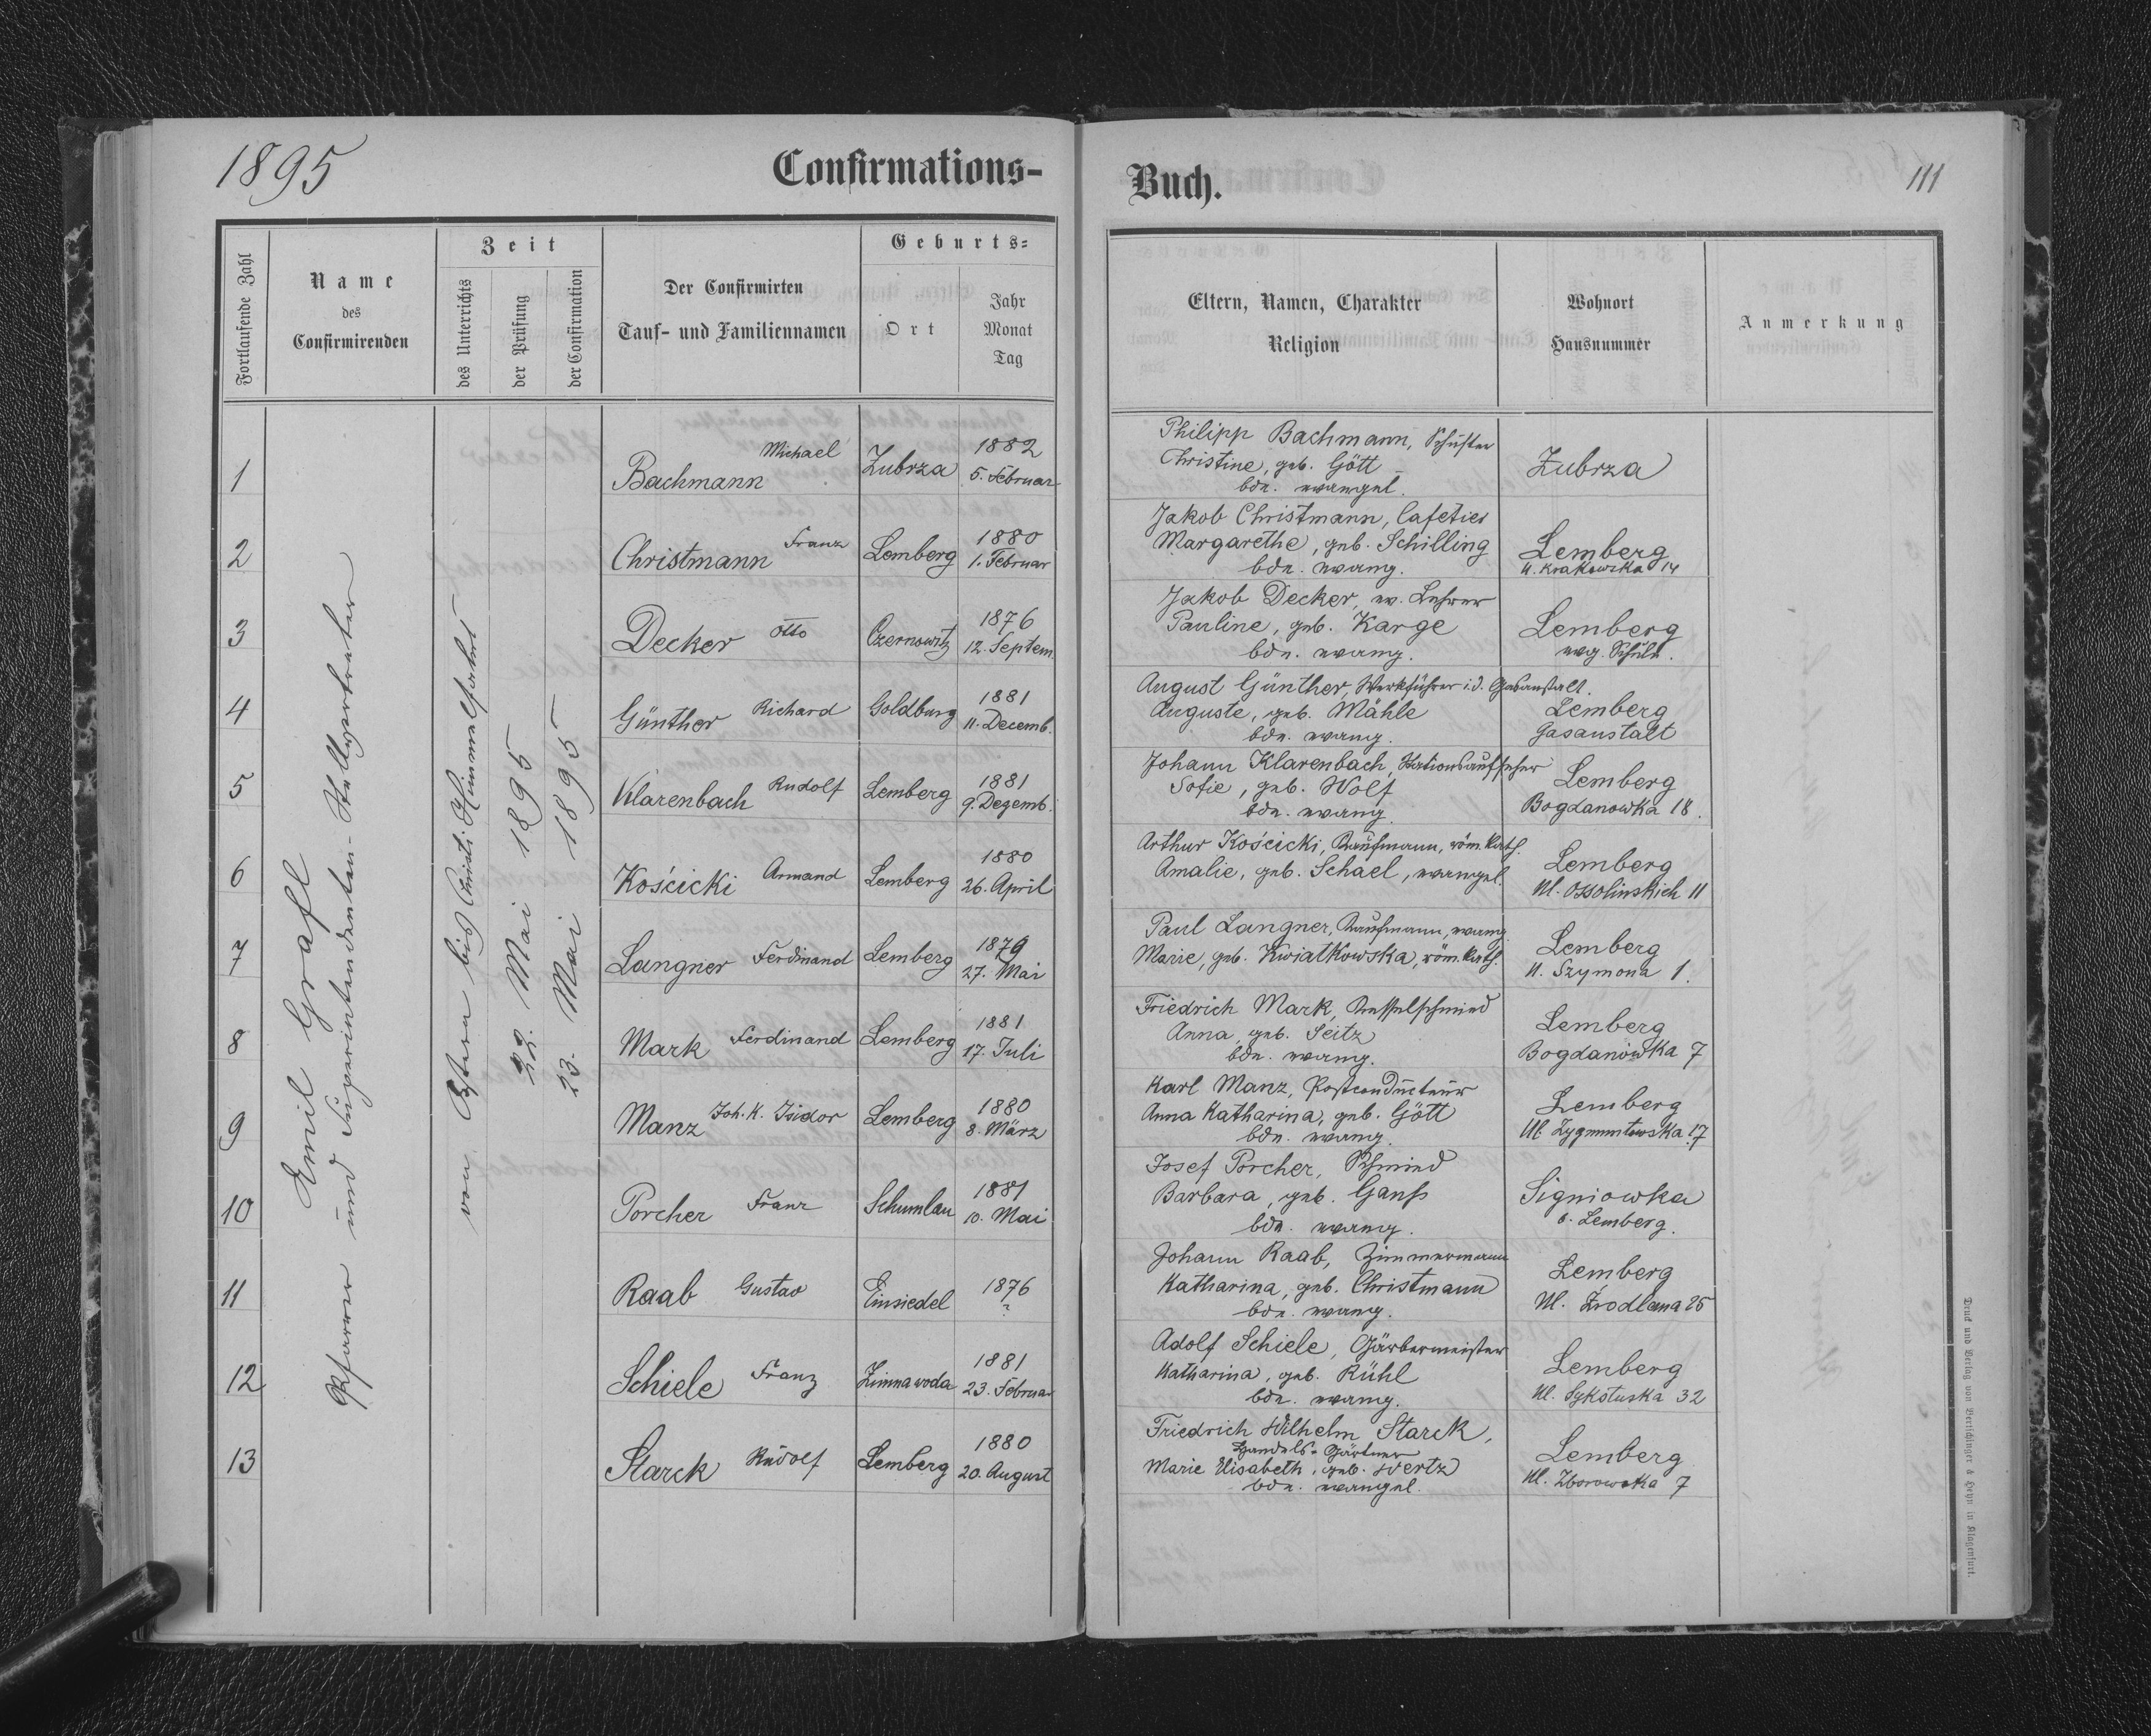 1895
Confirmations-
Fortlaufende Zahl
Name
des
Confirmirenden
Zeit
des Unterrichts
der Prüfung
der Confirmation
Der Confirmirten
Tauf- und Familiennamen
Geburts-
Ort
Jahr
Monat
Tag
Emil Grafl
Pfarrer und Superintendenten-Stellvertreter
von Ostern bis Christi Himmelfahrt
22. Mai 1895
23. Mai 1895
1 Bachmann Michael Zubrza 1882
5. Februar
2 Christmann Franz Lemberg 1880
1. Februar
3 Decker Otto Czernowitz 1876
12. Septem.
4 Günther Richard Goldburg 1881
11. Decemb.
5 Klarenbach Rudolf Lemberg 1881
9. Dezemb.
6 Kościcki Armand Lemberg 1880
26. April
7 Langner Ferdinand Lemberg 1879
27. Mai
8 Mark Ferdinand Lemberg 1881
17. Juli
9 Manz Joh. K. Isidor Lemberg 1880
8. März
10 Porcher Franz Schumlau 1881
10. Mai
11 Raab Gustav Einsiedel 1876
?
12 Schiele Franz Zimnawoda 1881
23. Februar
13 Starck Rudolf Lemberg 1880
20. August
Buch.
111
Eltern, Namen, Charakter
Religion
Wohnort
Hausnummer
Anmerkung
Philipp Bachmann, Schuster
Christine, geb. Gött
bde. evangel.
Zubrza
Jakob Christmann, Cafetier
Margarethe, geb. Schilling
bde. evang.
Lemberg
Ul. Krakowska 14
Jakob Decker, ev. Lehrer
Pauline, geb. Karge
bde. evang.
Lemberg
evg. Schule.
August Günther, Werkführer i.d. Gasanstalt.
Auguste, geb. Mähle
bde. evang.
Lemberg
Gasanstalt
Johann Klarenbach, Stationsaufseher
Sofie, geb. Wolf
bde. evang.
Lemberg
Bogdanowka 18.
Arthur Kościcki, Kaufmann, röm. kath.
Amalie, geb. Schael, evangel.
Lemberg
Ul. Ossolinskich 11
Paul Langner, Kaufmann, evang.
Marie, geb. Kwiatkowska, röm. kath.
Lemberg
Ul. Szymona 1.
Friedrich Mark, Kesselschmied
Anna, geb. Seitz
bde. evang.
Lemberg
Bogdanówka 7
Karl Manz, Postconducteur
Anna Katharina, geb. Gött
bde. evang.
Lemberg
Ul. Zygmuntowska 17
Josef Porcher, Schmied
Barbara, geb. Ganss
bde. evang.
Signiowka
b. Lemberg.
Johann Raab, Zimmermann
Katharina, geb. Christmann
bde. evang.
Lemberg
Ul. Źrodlana 25
Adolf Schiele, Gärbermeister
Katharina, geb. Rühl
bde. evang.
Lemberg
Ul. Sykstuska 32
Friedrich Wilhelm Starck,
Handels-Gärtner
Marie Elisabeth, geb. Wertz
bde. evangel.
Lemberg
Ul. Zborowska 7
Druck und Verlag von Bertschinger & Heyn in Klagenfurt.